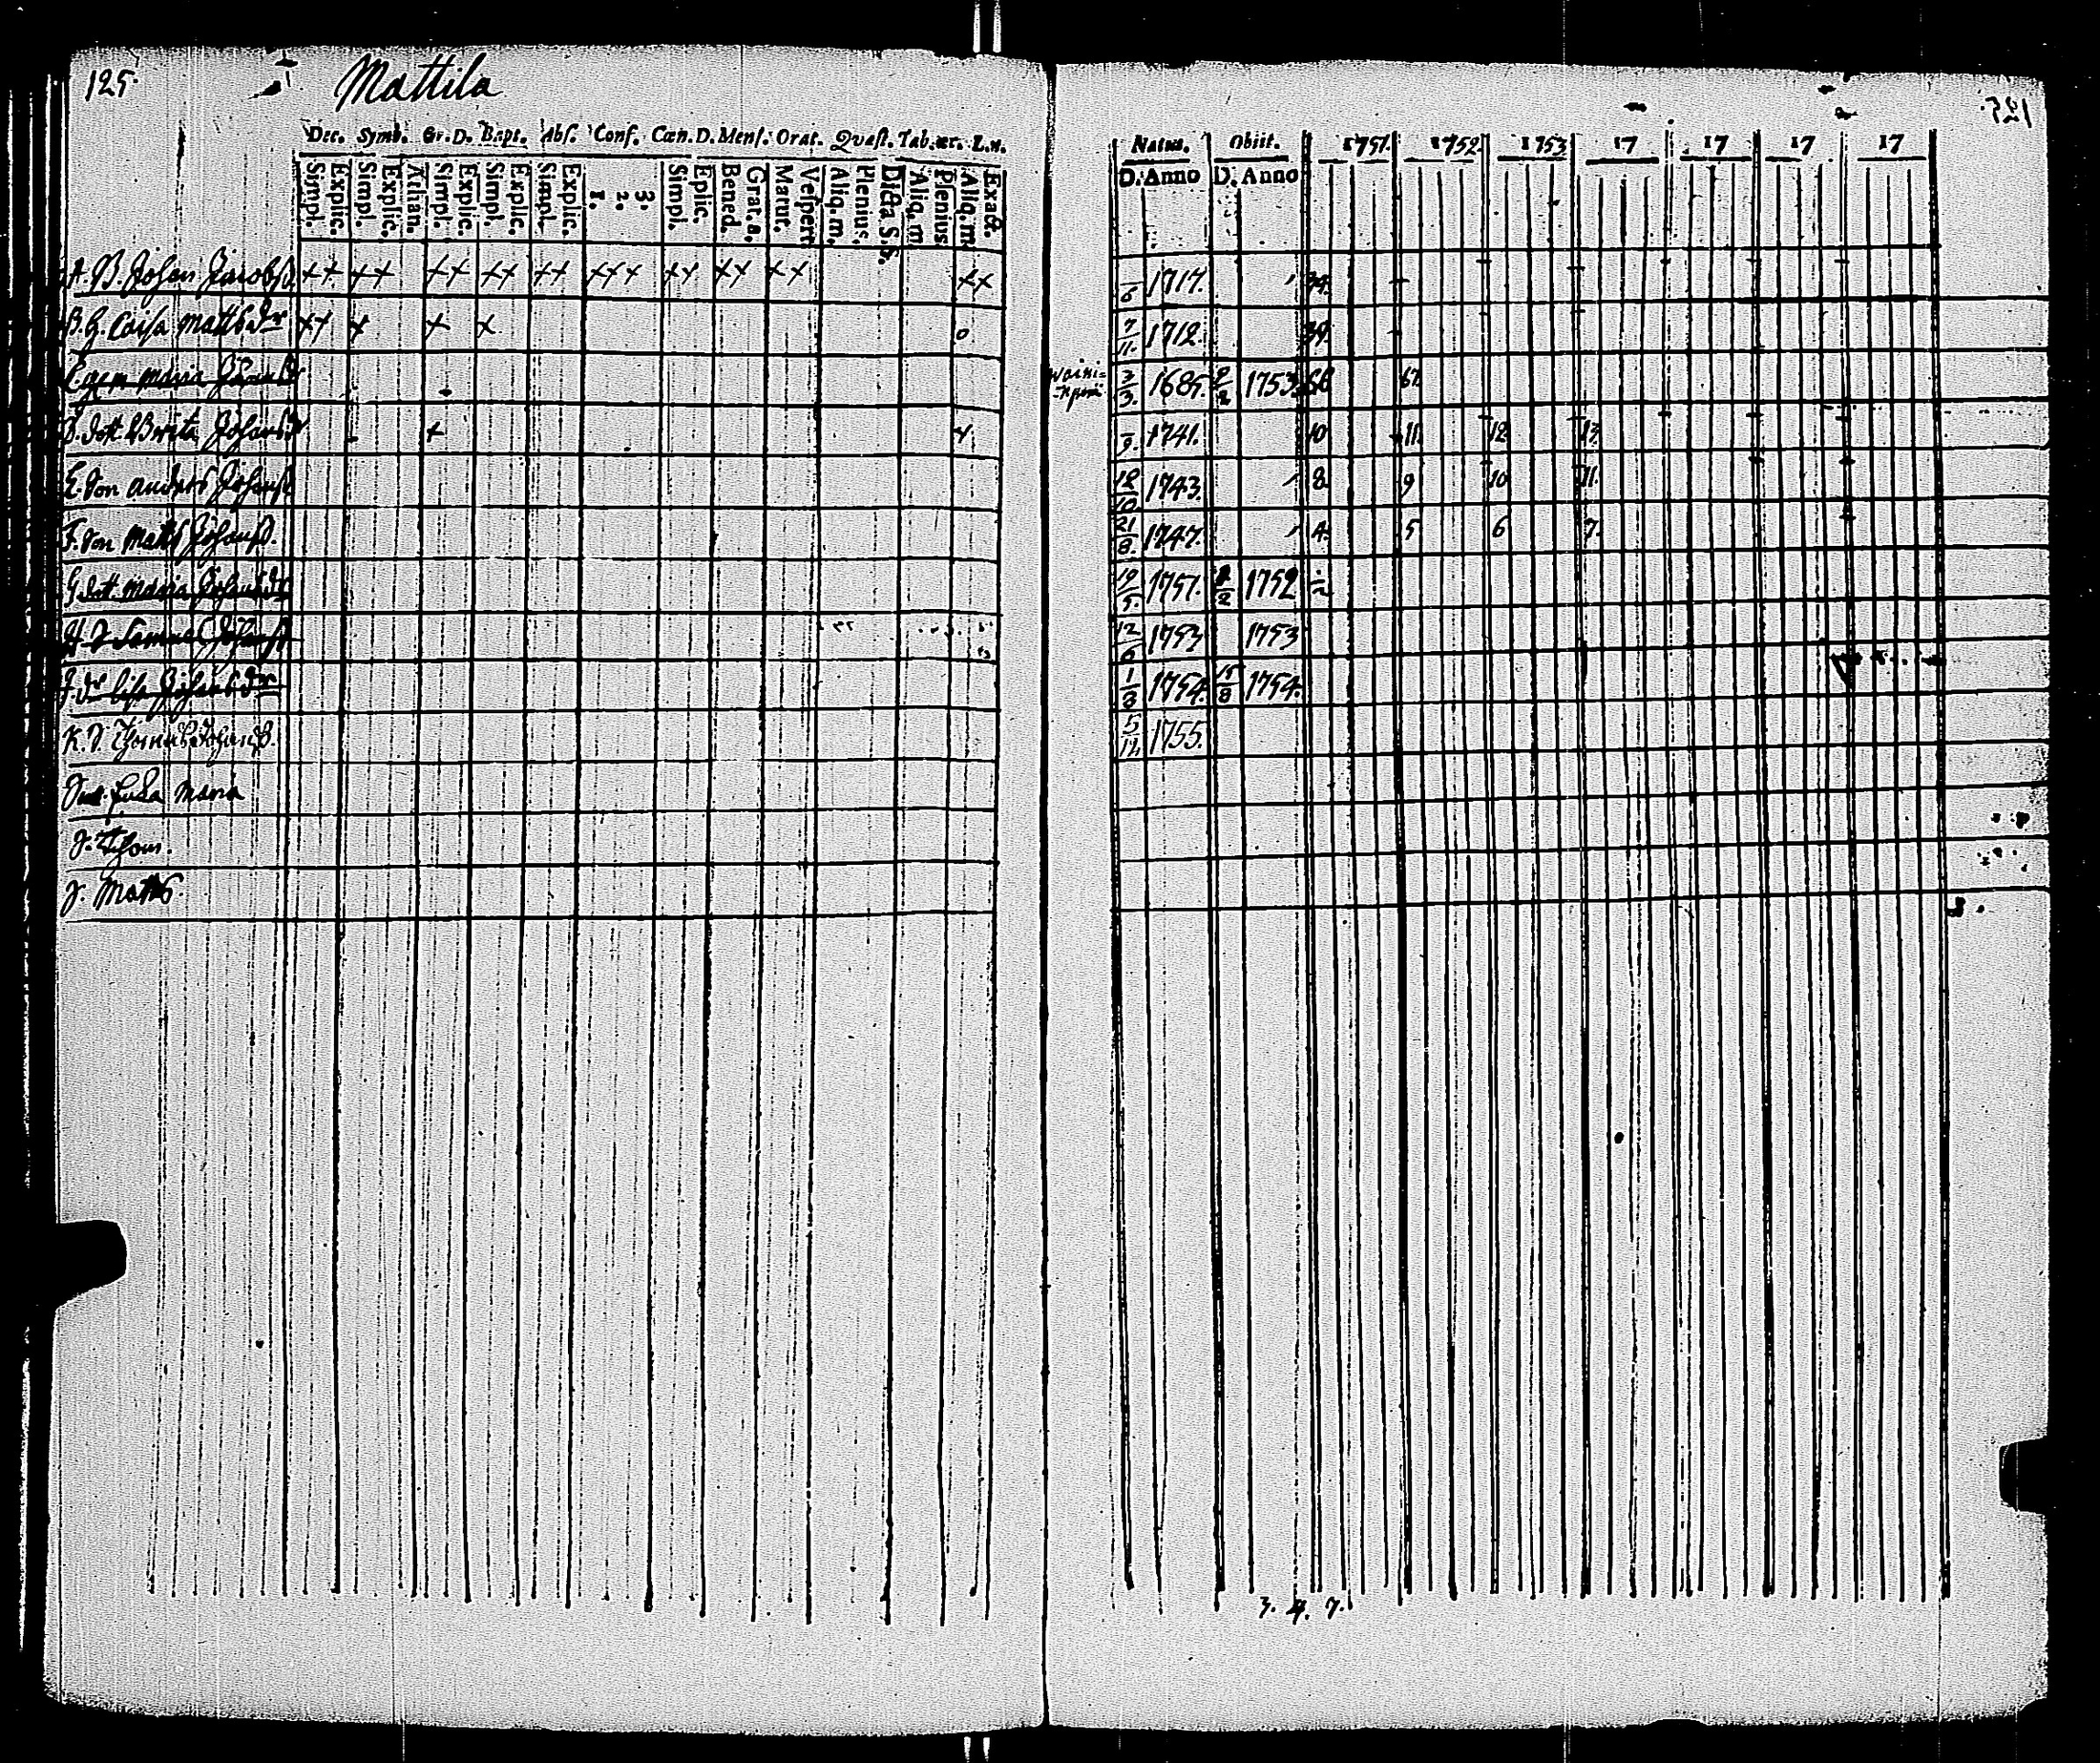 125. Mattila 125.
Dec. Symb. Or. D. Bapt. Abs. Conf. Cœn. D. Mens. Orat. Quæst. Tab. œc. L.n. Natus. Obiit. 1751. 1752 1753 17 17 17 17
Simpl. Explic. Simpl. Explic. Athan. Simpl. Explic. Simpl. Explic. Simpl. Explic. 1. 2. 3. Simpl. Eplic. Bened. Grat. a. Matut. Vespert. Aliq. m. Plenius. Dicta S. S. Aliq. m. Plenius Aliq. m. Exact. D. Anno D. Anno
A. B. Johan Jacobss. ++ ++ ++ ++ ++ +++ ++ ++ ++ ++ 6 1717. 34.
B. H. Caisa Mattsdr ++ + + + o 7/11. 1712. 39.
Maria 3/3. 1685. 1753. 66 67.
D. dott. Brita Johansdr + + 9. 1741. 10 11. 12 13.
E. Son Anders Johanss 18/10 1743. 8. 9 10 11.
F. Son Matts Johanss. 21/8. 1747. 4. 5 6 7.
G dott. Maria Johansdr 19/5. 1751. 2 1752
H. S. Samuel Johanss 12/6 1753 1753
J. dr Lisa Johansdr 1/3 1754. 15/8 1754.
K. S. Thomas Johanss. 5/12. 1755.
Maria
J. Thom.
J. Matts
3. 4. 7.